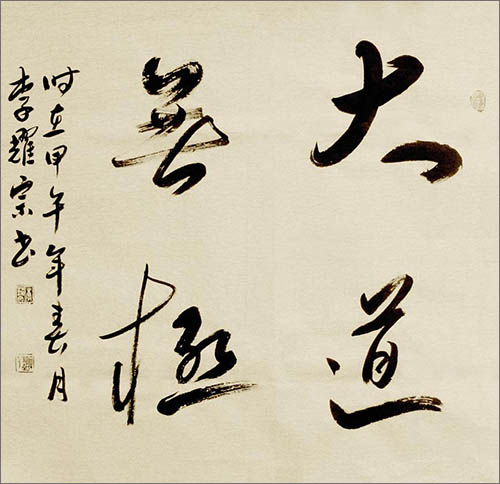 大道
無極
时在甲午年春月
李耀宗书